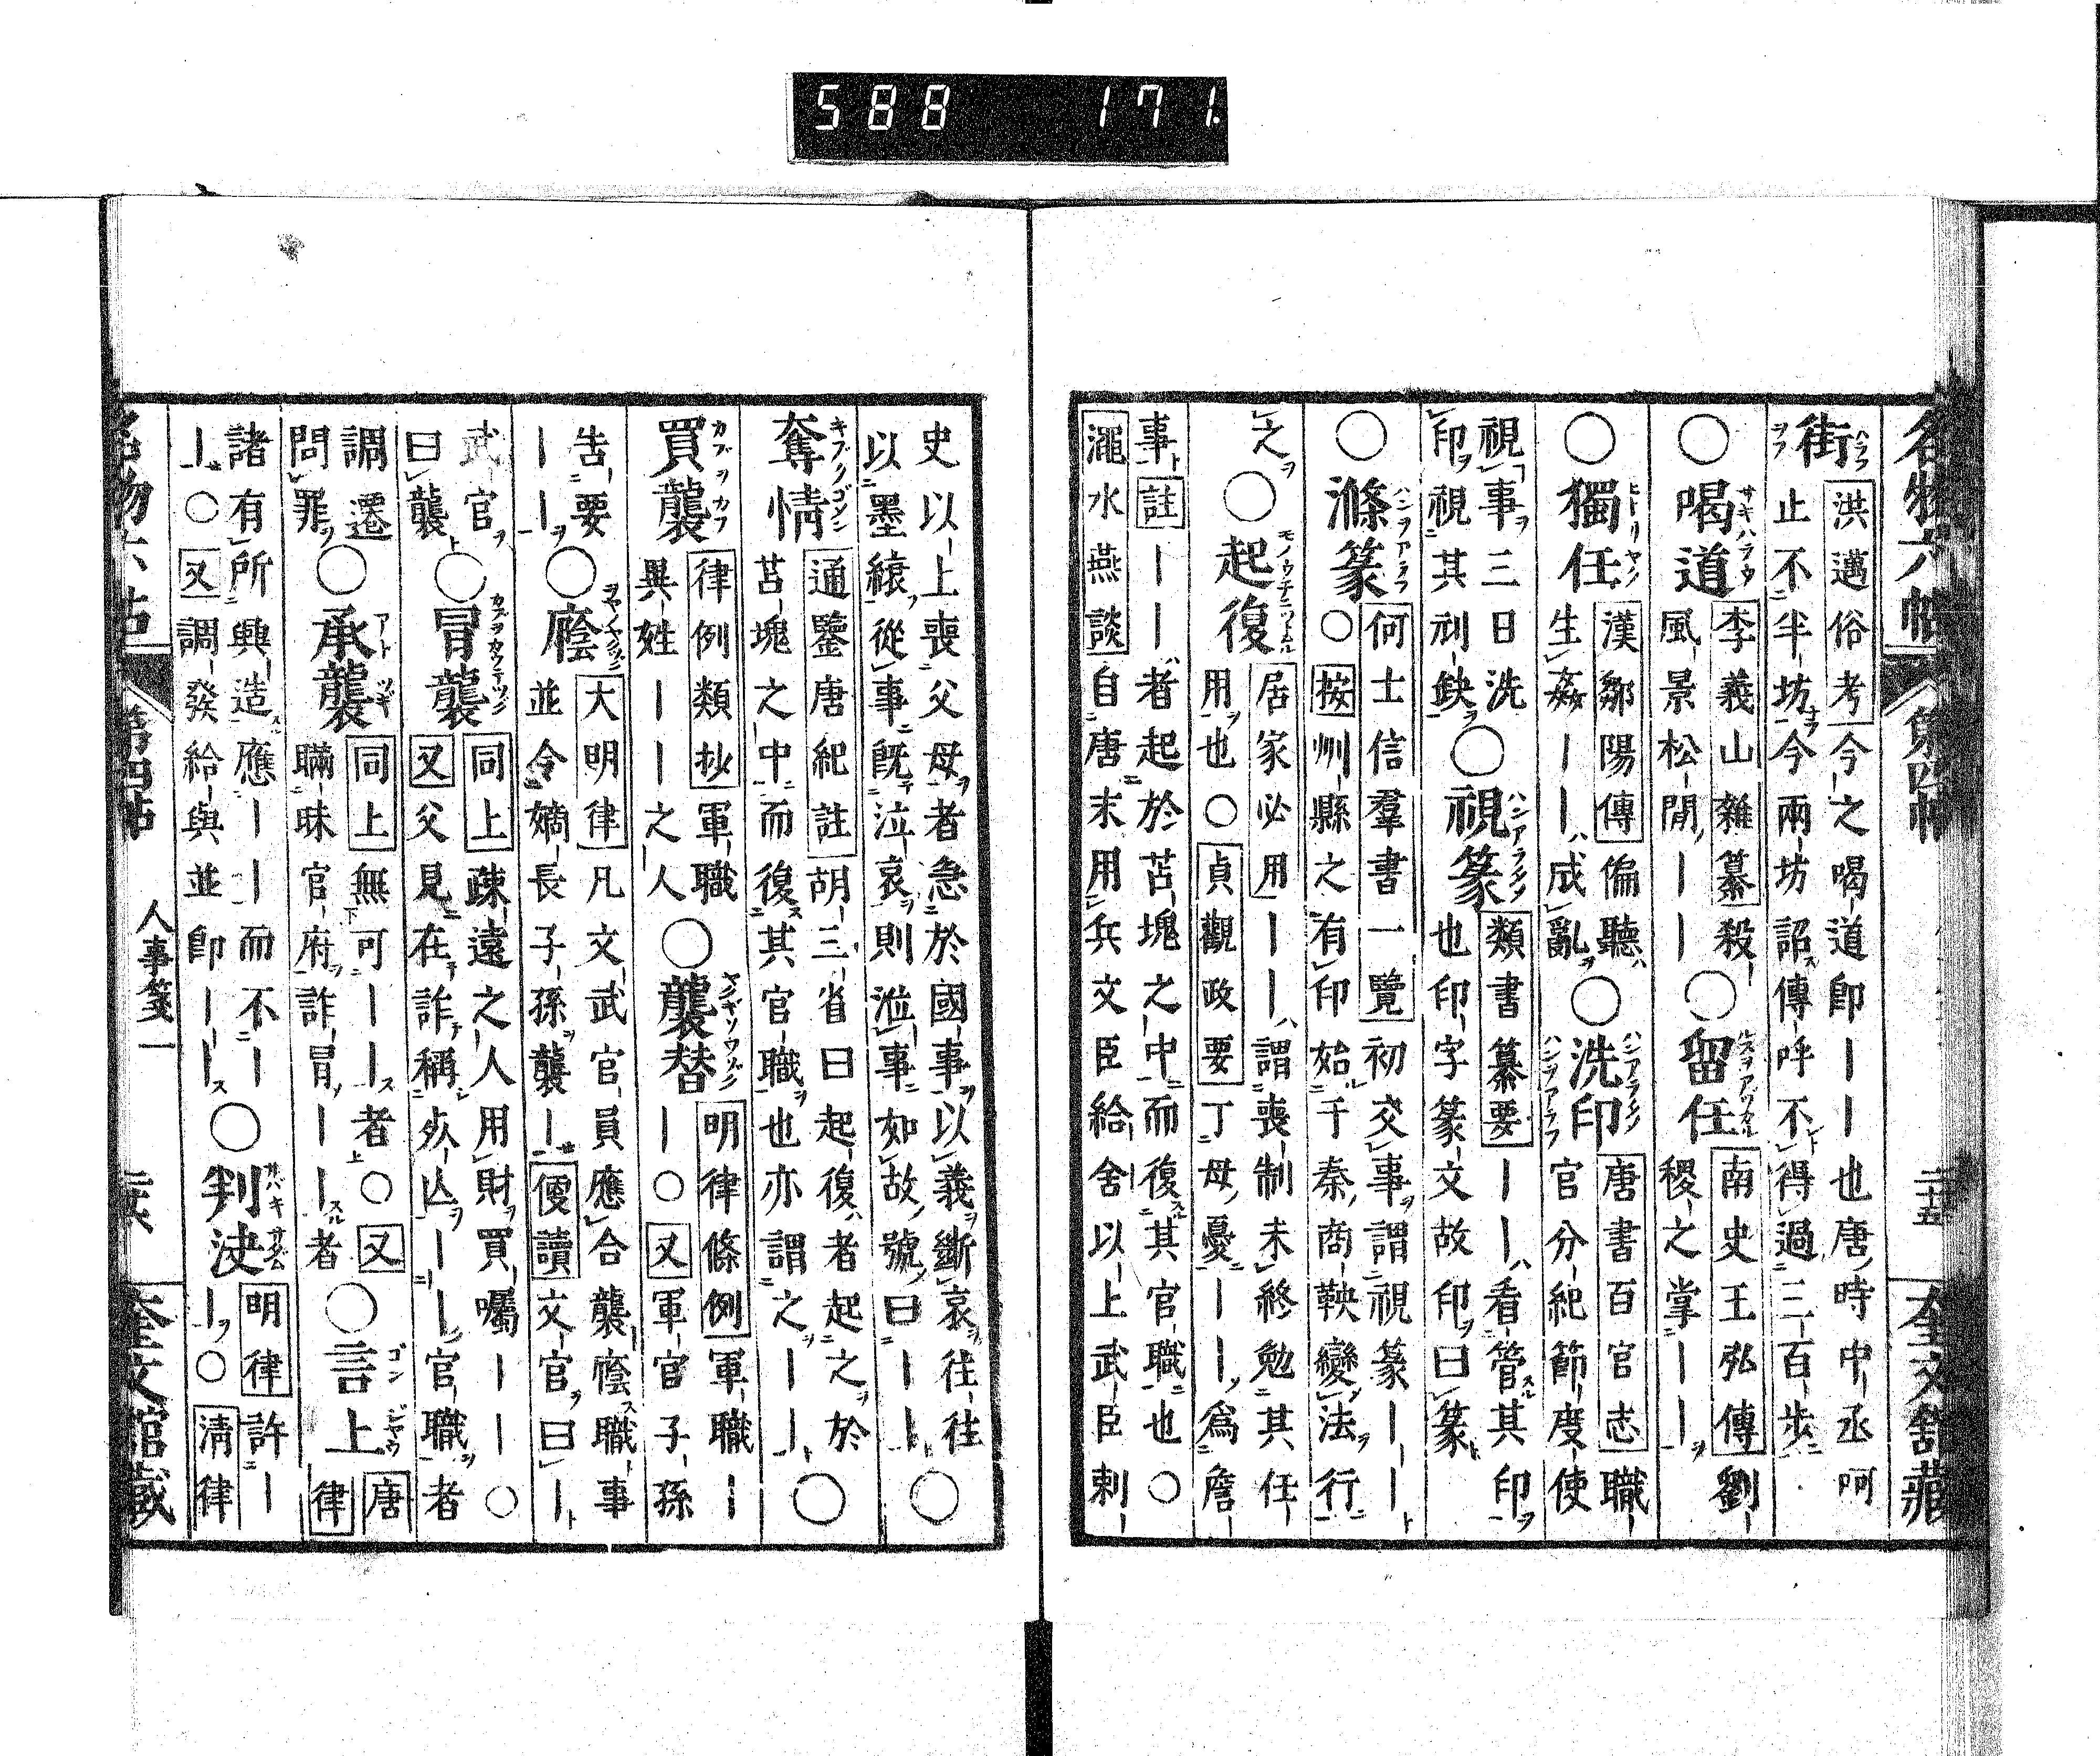 588 171.
名物六帖 第四帖 二十五 奎文館藏
街 洪邁俗考 今之喝道即――也唐時中丞呵
止不半坊今兩坊詔傳呼不得過三百步
○喝道 李義山雜纂 殺
風景松間――○留任 南史王弘傳 劉
穆之掌――
○獨任 漢鄒陽傳 偏聽
生姦――成亂○洗印 唐書百官志 職
官分紀節度使
視事三日洗
印視其刓缺○視篆 類書纂要 ――看管其印
也印字篆文故印曰篆
○滌篆 何士信羣書一覽 初交事謂視篆――
○按州縣之有印始于秦商鞅變法行
之○起復 居家必用 ――謂喪制未終勉其任
用也○貞觀政要 丁母憂――為詹
事 註 ――者起於苫塊之中而復其官職也○
澠水燕談 自唐末用兵文臣給舍以上武臣刺
史以上喪父母者急於國事以義斷哀往往
以墨縗從事既泣哀則涖事如故號曰――○
奪情 通鑒唐紀註 胡三省曰起復者起之於
苫塊之中而復其官職也亦謂之――○
買襲 律例類抄 軍職
異姓――之人○襲替 明律條例 軍職―
―○又軍官子孫
告要
――○廕 大明律 凡文武官員應合襲廕職事
並令嫡長子孫襲― 便讀 文官曰―
武官
曰襲○冒襲 同上 疎遠之人用財買囑――○
又父見在詐稱死亡――官職者
調遷
問罪○承襲 同上 無可――者○又
瞞昧官府詐冒――者○言上 唐律
諸有所興造應――而不―
―○又調發給與並即――○判決 明律 許―
―○清律
名物六帖 第四帖 人事箋一 奎文館藏